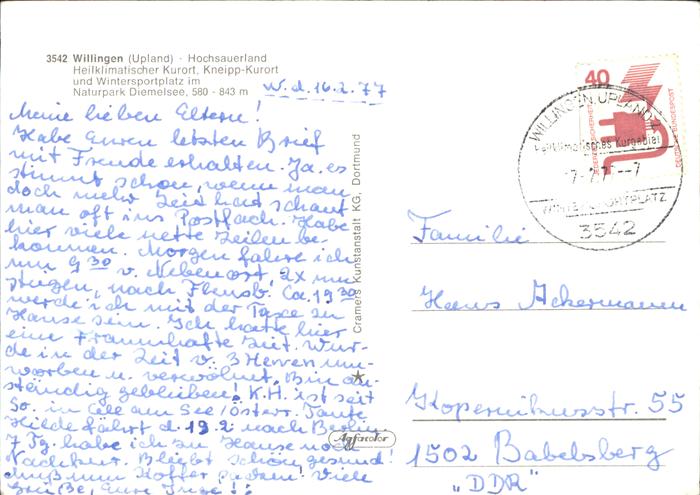 3542 Willingen (Upland) · Hochsauerland
Heilklimatischer Kurort, Kneipp-Kurort
und Wintersportplatz im
Naturpark Diemelsee, 580 - 843 m
W. d. 16.2.77
Meine lieben Eltern!
Habe Euren letzten Brief
mit Freude erhalten. Ja. es
stimmt schon, wenn man
doch mehr Zeit hat schaut
man oft ins Postfach. Habe
hier viele nette Zeilen be-
kommen. Morgen fahre ich
um 9 30 v. Nebenort, 2x um
steigen, nach Flensb. Ca. 19 30
werde ich mit der Taxe zu
Hause sein. Ich hatte hier
eine traumhafte Zeit. Wur-
de in der Zeit v. 3 Herren um-
worben u. verwöhnt. Bin an-
ständig geblieben! K.H. ist seit
So. in Zell am See/Österr. Tante
Hilde fährt d. 19.2 nach Berlin.
7 Tg. habe ich zu Hause noch
Nachkur. Bleibt schön gesund!
Muß nun Koffer packen! Viele
Grüße, Eure Inge!!
Cramers Kunstanstalt KG, Dortmund
Agfacolor
40
JEDERZEIT SICHERHEIT
DEUTSCHE BUNDESPOST
WILLINGEN, UPLAND
Heilklimatisches Kurgebiet
WINTERSPORTPLATZ
3542
Familie
Hans Ackermann
Kopernikusstr. 55
1502 Babelsberg
„DDR"